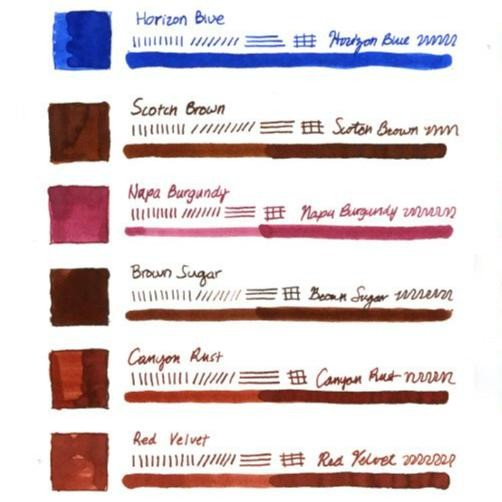 Horizon Blue
Horizon Blue
Scotch Brown
Scotch Brown
Napa Burgundy
Napa Burgundy
Brown Sugar
Brown Sugar
Canyon Rust
Canyon Rust
Red Velvet
Red Velvet